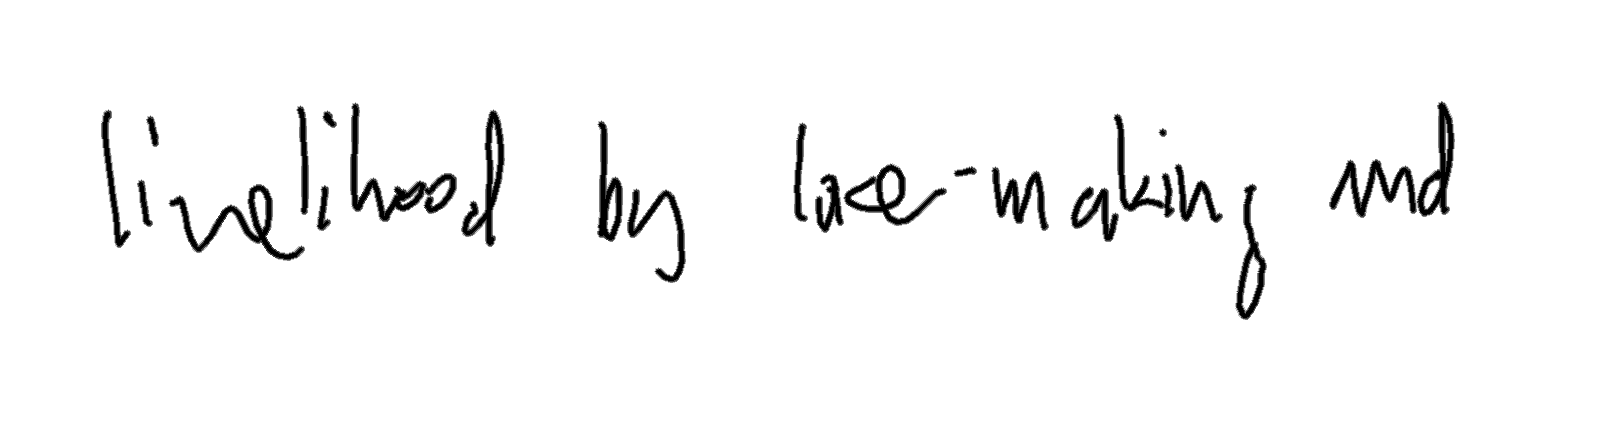 livelihood by lace-making and